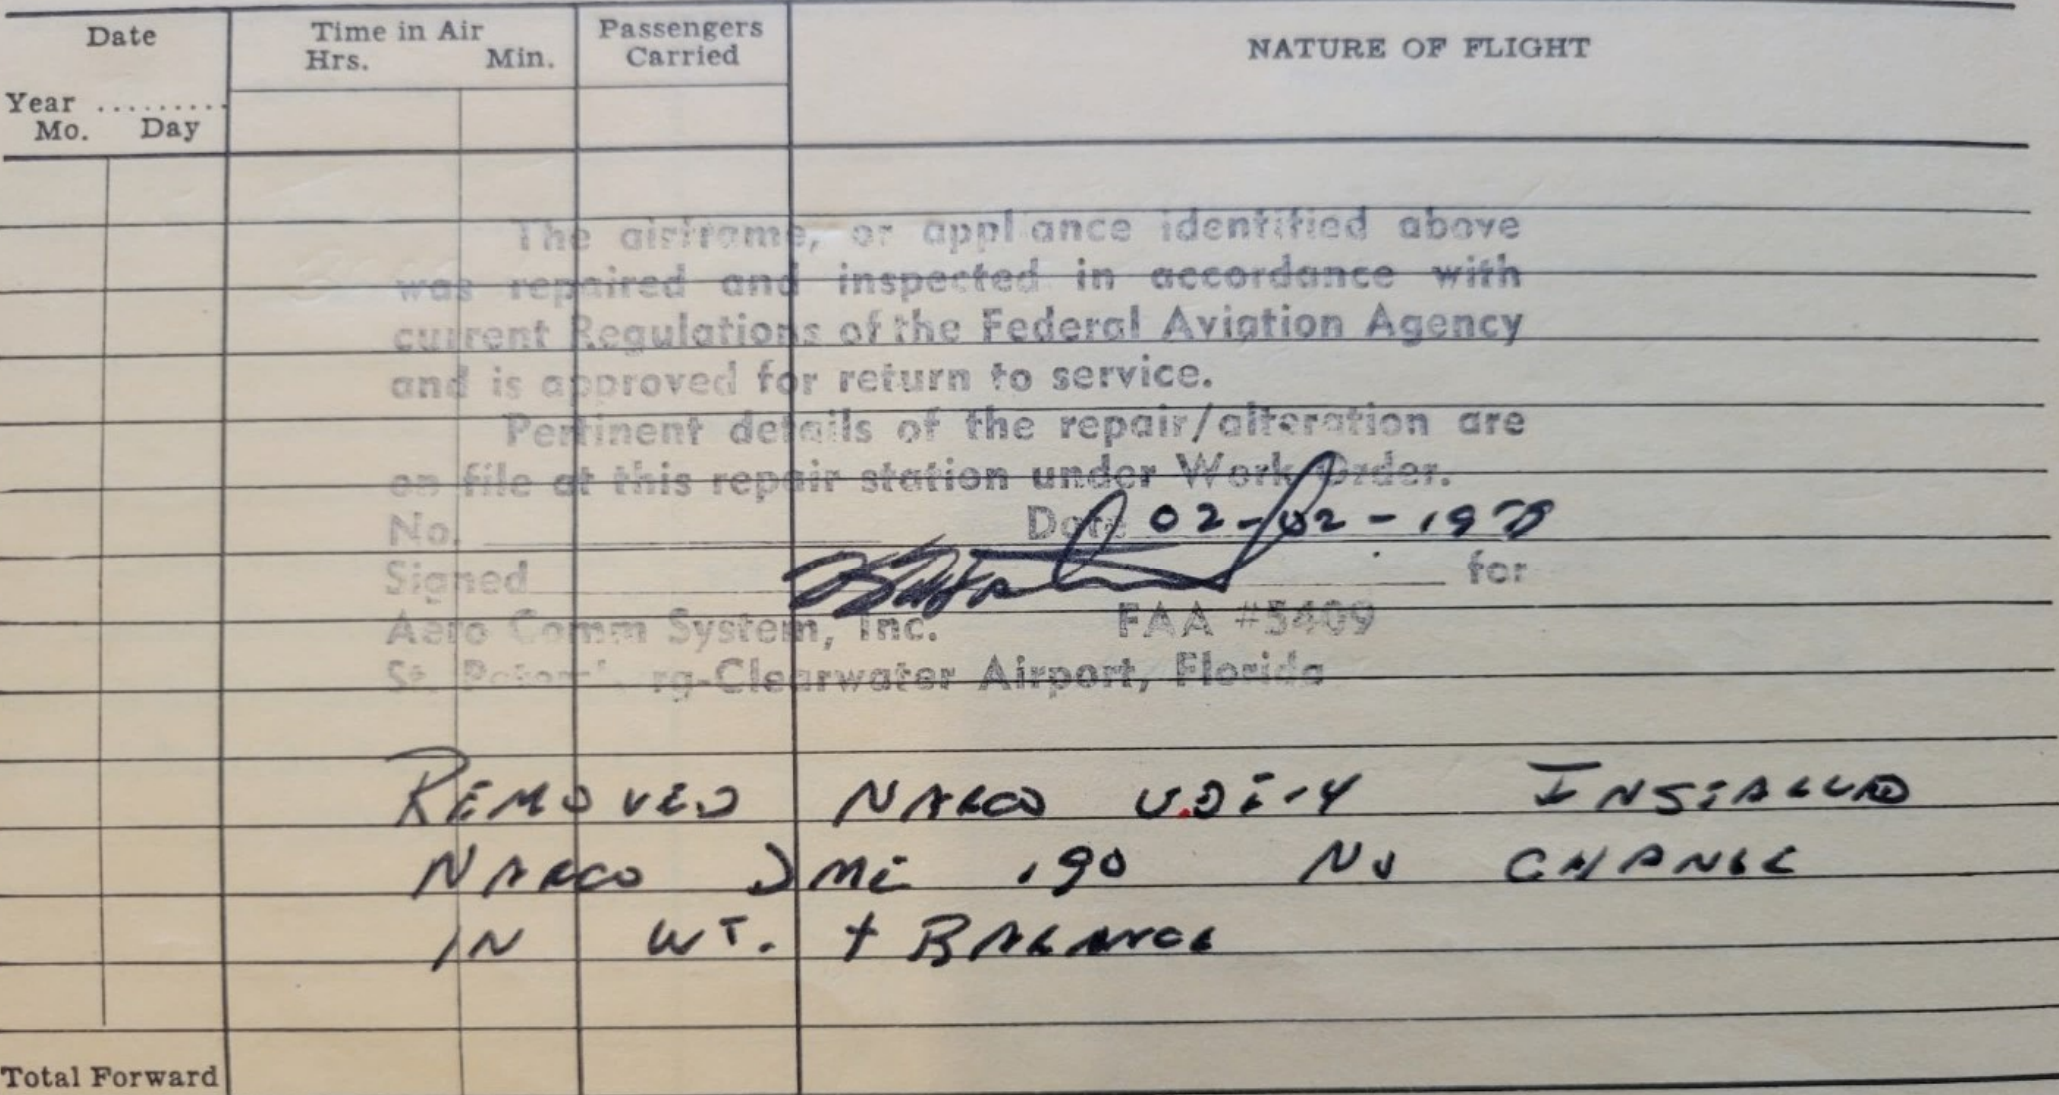 Date Time in Air Passengers NATURE OF FLIGHT
Hrs. Min. Carried
Year .........
Mo. Day
The airframe, or appliance identified above
was repaired and inspected in accordance with
current Regulations of the Federal Aviation Agency
and is approved for return to service.
Pertinent details of the repair/alteration are
on file at this repair station under Work Order.
No. Date 02-02-197
Signed for
Aero Comm System, Inc. FAA #5409
St. Petersburg-Clearwater Airport, Florida
REMOVED NARCO UDI-4 INSTALLED
NARCO DME 190 NO CHANGE
IN WT. + BALANCE
Total Forward